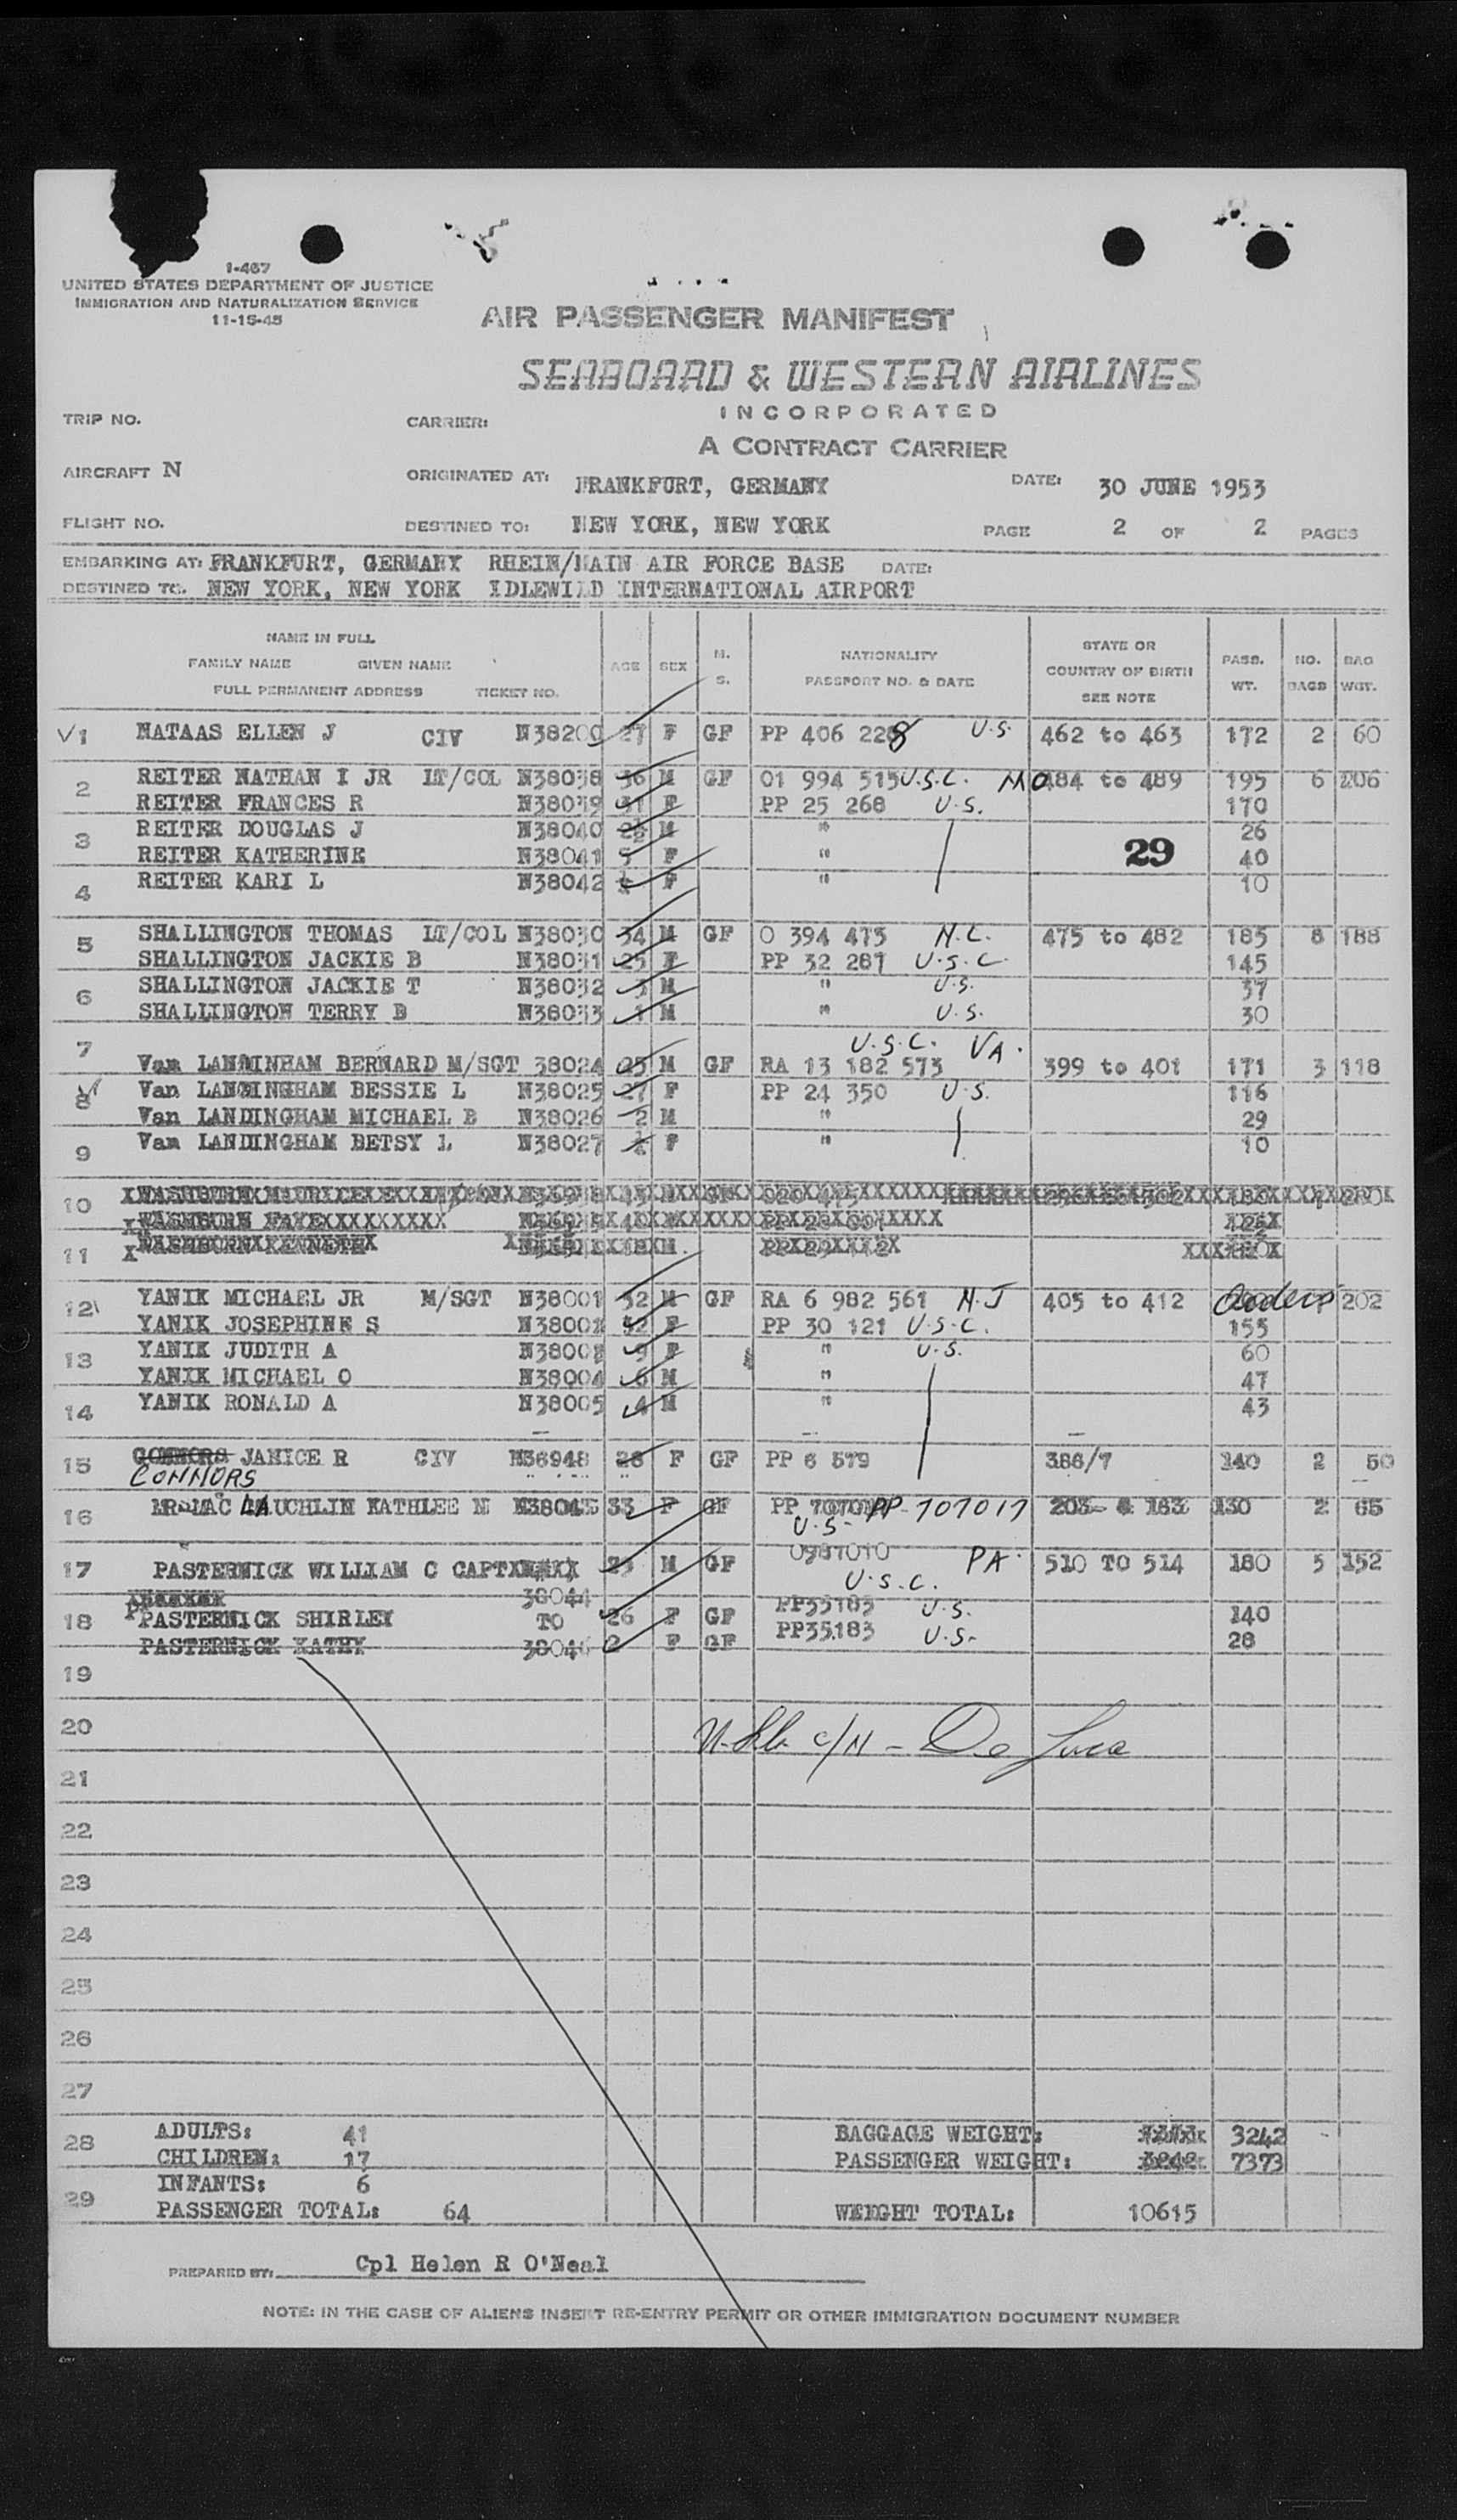 1-467
UNITED STATES DEPARTMENT OF JUSTICE
IMMIGRATION AND NATURALIZATION SERVICE
11-15-45
AIR PASSENGER MANIFEST
SEABOARD & WESTERN AIRLINES
INCORPORATED
A CONTRACT CARRIER
TRIP NO. CARRIER:
AIRCRAFT N ORIGINATED AT: FRANKFURT, GERMANY DATE: 30 JUNE 1953
FLIGHT NO. DESTINED TO: NEW YORK, NEW YORK PAGE 2 OF 2 PAGES
EMBARKING AT: FRANKFURT, GERMANY RHEIN/MAIN AIR FORCE BASE DATE:
DESTINED TO. NEW YORK, NEW YORK IDLEWILD INTERNATIONAL AIRPORT
NAME IN FULL FAMILY NAME GIVEN NAME FULL PERMANENT ADDRESS TICKET NO. AGE SEX M. S. NATIONALITY PASSPORT NO. & DATE STATE OR COUNTRY OF BIRTH SEE NOTE PASS. WT. NO. BAGS BAG WGT.
1 NATAAS ELLEN J CIV N38200 27 F GF PP 406 228 U.S. 462 to 463 172 2 60
2 REITER NATHAN I JR LT/COL N38038 36 M GF 01 994 515 U.S.C. MO 484 to 489 195 6 206
REITER FRANCES R N38039 31 F PP 25 268 U.S. 170
3 REITER DOUGLAS J N38040 2½ M " 26
REITER KATHERINE N38041 5 F " 29 40
4 REITER KARI L N38042 F " 10
5 SHALLINGTON THOMAS LT/COL N38030 34 M GF O 394 473 N.C. 475 to 482 185 8 188
SHALLINGTON JACKIE B N38031 25 F PP 32 281 U.S.C. 145
6 SHALLINGTON JACKIE T N38032 3 M " U.S. 37
SHALLINGTON TERRY B N38033 1 M " U.S. 30
7 U.S.C. VA.
Van LANDINHAM BERNARD M/SGT 38024 25 M GF RA 13 182 573 399 to 401 171 3 118
8 Van LANDINGHAM BESSIE L N38025 27 F PP 24 350 U.S. 116
Van LANDINGHAM MICHAEL B N38026 2 M " 29
9 Van LANDINGHAM BETSY L N38027 ½ F " 10
10 WASHBURN
WASHBURN FAYE
11 WASHBURN KENNETH
12 YANIK MICHAEL JR M/SGT N38001 32 M GF RA 6 982 561 N.J 405 to 412 202
YANIK JOSEPHINE S 32 F PP 30 121 U.S.C. 155
13 YANIK JUDITH A 9 F " U.S. 60
YANIK MICHAEL O N38004 6 M " 47
14 YANIK RONALD A N38005 4 M " 43
15 CONNORS JANICE R CIV N36948 28 F GF PP 6 579 386/7 140 2 50
CONNORS
16 MRS MAC LAUCHLIN KATHLEE N 33 F GF PP PP-707017 203 & 183 130 2 65
U.S-
17 PASTERNICK WILLIAM C CAPT 23 M GF 0987010 PA. 510 TO 514 180 5 152
U.S.C.
38044
18 PASTERNICK SHIRLEY TO 26 F GF PP35183 U.S. 140
PASTERNICK KATHY 38046 2 F GF PP35183 U.S- 28
19
20 De Luca
21
22
23
24
25
26
27
28 ADULTS: 41 BAGGAGE WEIGHT: 3242
CHILDREN: 17 PASSENGER WEIGHT: 7373
INFANTS: 6
29 PASSENGER TOTAL: 64 WEIGHT TOTAL: 10615
PREPARED BY: Cpl Helen R O'Neal
NOTE: IN THE CASE OF ALIENS INSERT RE-ENTRY PERMIT OR OTHER IMMIGRATION DOCUMENT NUMBER